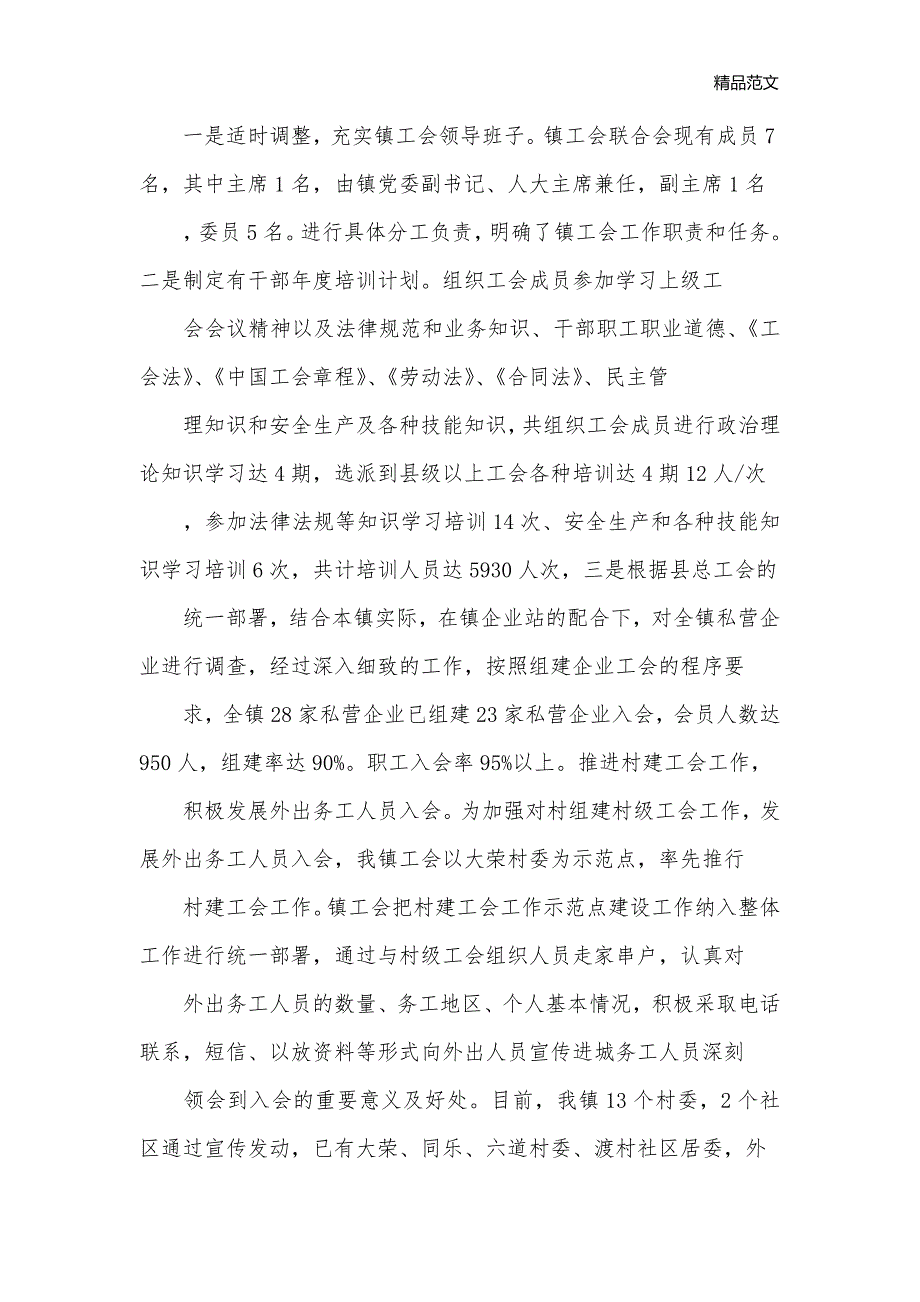 精品范文
一是适时调整，充实镇工会领导班子。镇工会联合会现有成员7
名，其中主席1名，由镇党委副书记、人大主席兼任，副主席1名
，委员5名。进行具体分工负责，明确了镇工会工作职责和任务。
二是制定有干部年度培训计划。组织工会成员参加学习上级工
会会议精神以及法律规范和业务知识、干部职工职业道德、《工
会法》、《中国工会章程》、《劳动法》、《合同法》、民主管
理知识和安全生产及各种技能知识，共组织工会成员进行政治理
论知识学习达4期，选派到县级以上工会各种培训达4期12人/次
，参加法律法规等知识学习培训14次、安全生产和各种技能知
识学习培训6次，共计培训人员达5930人次，三是根据县总工会的
统一部署，结合本镇实际，在镇企业站的配合下，对全镇私营企
业进行调查，经过深入细致的工作，按照组建企业工会的程序要
求，全镇28家私营企业已组建23家私营企业入会，会员人数达
950人，组建率达90%。职工入会率95%以上。推进村建工会工作，
积极发展外出务工人员入会。为加强对村组建村级工会工作，发
展外出务工人员入会，我镇工会以大荣村委为示范点，率先推行
村建工会工作。镇工会把村建工会工作示范点建设工作纳入整体
工作进行统一部署，通过与村级工会组织人员走家串户，认真对
外出务工人员的数量、务工地区、个人基本情况，积极采取电话
联系，短信、以放资料等形式向外出人员宣传进城务工人员深刻
领会到入会的重要意义及好处。目前，我镇13个村委，2个社
区通过宣传发动，已有大荣、同乐、六道村委、渡村社区居委，外